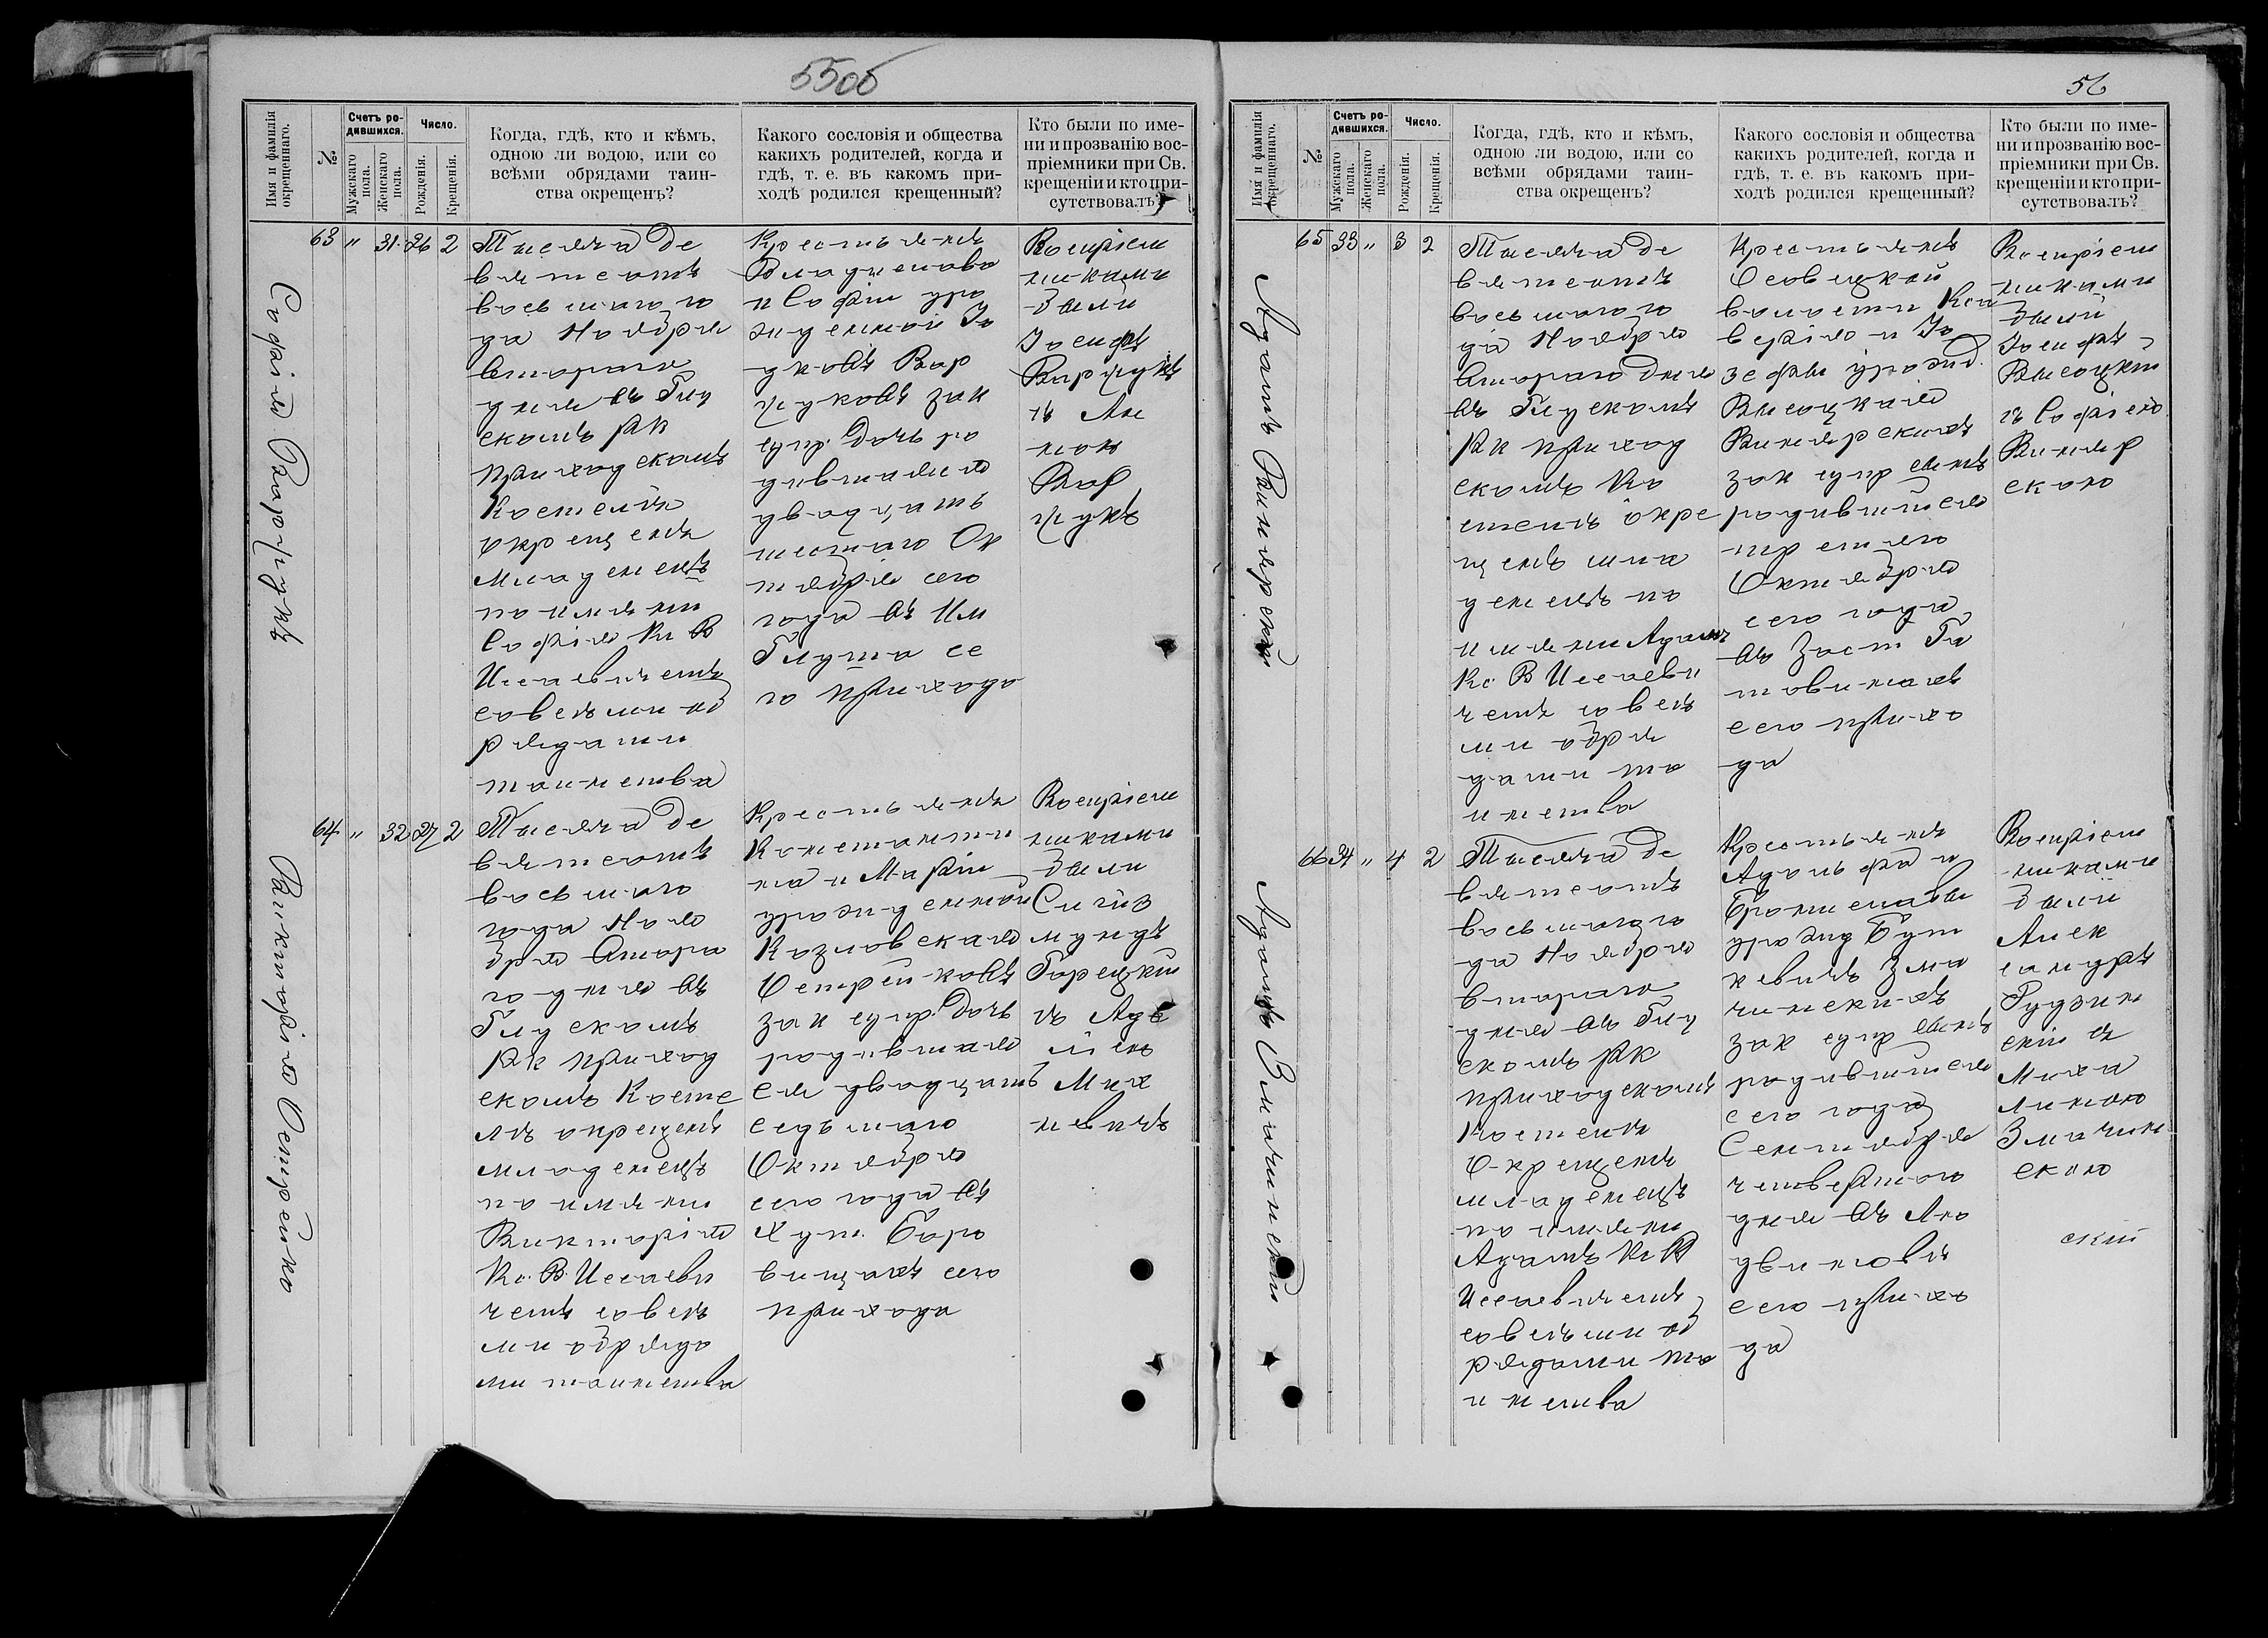 55об
Имя и фамилія окрещеннаго.
№
Счетъ родившихся.
Мужскаго пола.
Женскаго пола.
Число.
Рожденія.
Крещенія.
Когда, гдѣ, кто и кѣмъ,
одною ли водою, или со
всѣми обрядами таин-
ства окрещенъ?
Какого сословія и общества
какихъ родителей, когда и
гдѣ, т. е. въ какомъ при-
ходѣ родился крещенный?
Кто были по име-
ни и прозванію вос-
пріемники при Св.
крещеніи и кто при-
сутствовалъ?
Софія Варчукъ
63 " 31 26 2
Тысяча де
вятсотъ
восьмаго го
да Ноября
втораго
дня въ Глу
скомъ РК
приходскомъ
Костелѣ
окрещенъ
младенецъ
по имяни
Софія Кс В
Иссаевичемъ
совсѣми об
рядами
таинства
Крестьянъ
Владислава
и Софіи уро
жденной Jо
дковъ Вар
чуковъ зак
супр. дочь ро
дившаяся
двадцать
шестаго Ок
тября сего
года въ Им
Глуша се
го прихода
Воспріем
никами
были
Іосифъ
Варчукъ
съ Ан
ною
Вар
чукъ
Викторія Остpейко
64 " 32 27 2
Тысяча де
вятсотъ
восьмаго
года Ноя
бря втора
го дня въ
Глускомъ
РК приход
скомъ Косте
лѣ окрещенъ
младенецъ
по имяни
Викторія
Кс. В. Иссаеви
чемъ совсѣ
ми обряда
ми таинства
Крестьянъ
Константи
на и Маріи
урожденной
Козловская
Острейковъ
зак супр. дочь
родившая
ся двадцать
седьмаго
Октября
сего года въ
Хут. Боро
вищахъ сего
прихода
Воспріем
никами
были
Сигиз
мундъ
Горецкій
съ Аде
лею
Мих
невичъ
56
Имя и фамилія окрещеннаго.
№
Счетъ родившихся.
Мужскаго пола.
Женскаго пола.
Число.
Рожденія.
Крещенія.
Когда, гдѣ, кто и кѣмъ,
одною ли водою, или со
всѣми обрядами таин-
ства окрещенъ?
Какого сословія и общества
какихъ родителей, когда и
гдѣ, т. е. въ какомъ при-
ходѣ родился крещенный?
Кто были по име-
ни и прозванію вос-
пріемники при Св.
крещеніи и кто при-
сутствовалъ?
Адамъ Винярскій
65 33 " 3 2
Тысяча де
вятсотъ
восьмаго го
да Ноября
втораго дня
въ Глускомъ
РК приход
скомъ Ко
стелѣ окре
щенъ мла
денецъ по
имяни Адамъ
Кс В Иссаеви
чемъ совсѣ
ми обря
дами та
инства
Крестьянъ
Осовецкой
волости Кса
верія и Іо
зефы урожд.
Высоцкая
Винярскихъ
зак супр сынъ
родившійся
третяго
Октября
сего года
въ Заст Га
товинахъ
сего прихо
да
Воспріем
никами
были
Іосифъ
Высоцкій
съ Софіею
Виняр
скою
Адамъ Змачинскій
66 34 " 4 2
Тысяча де
вятсотъ
восьмаго го
да Ноября
втораго
дня въ Глу
скомъ РК
приходскомъ
Костелѣ
Окрещенъ
младенецъ
по имяни
Адамъ Кс В
Иссаевичемъ
совсѣми об
рядами та
инства
Крестьянъ
Адольфа и
Брониславы
урожд Бут
кевичъ Зма
чинскихъ
зак супр сынъ
родившійся
сего года
Сентября
четвертаго
дня въ Лю
двиновѣ
сего прихо
да
Воспріем
никами
были
Алек
сандръ
Рудзин
скій съ
Миха
линою
Змачин
скою
скій